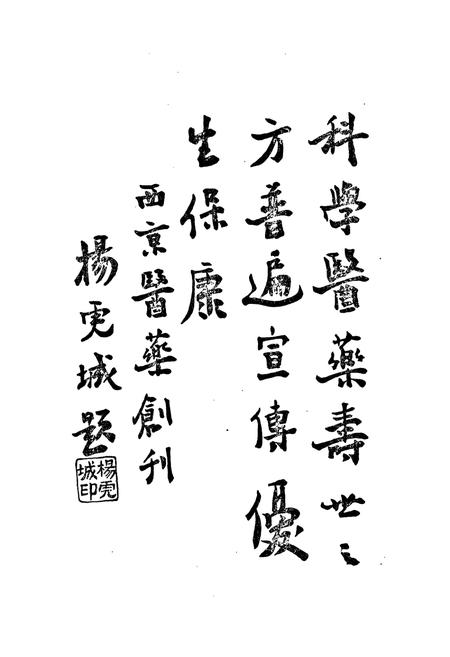 科學醫藥壽世之
方普遍宣傳優
生保康
西京醫藥創刊
楊虎城題
楊虎城印